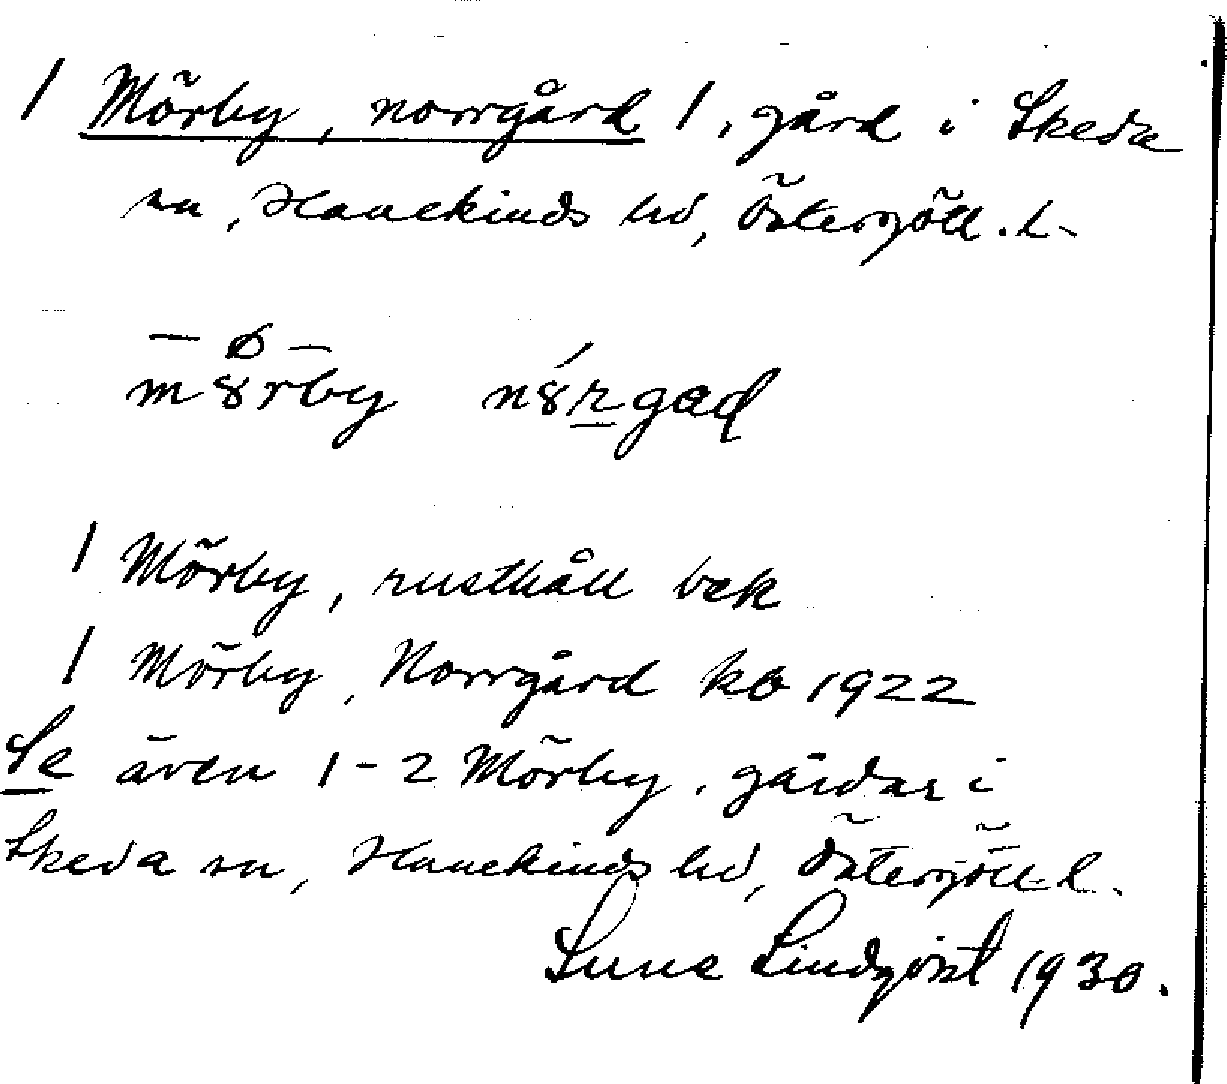 1 Mörby, norrgård 1, gård i Skeda
sn, Hanekinds hd, Östergötl. l.
– ø –
m8rby n8́rgaḍ
1 Mörby, rusthåll bek
1 Mörby, Norrgård kb 1922
Se även 1-2 Mörby, gårdar i
Skeda sn, Hanekinds hd, Östergötl. l.
Sune Lindqvist 1930.